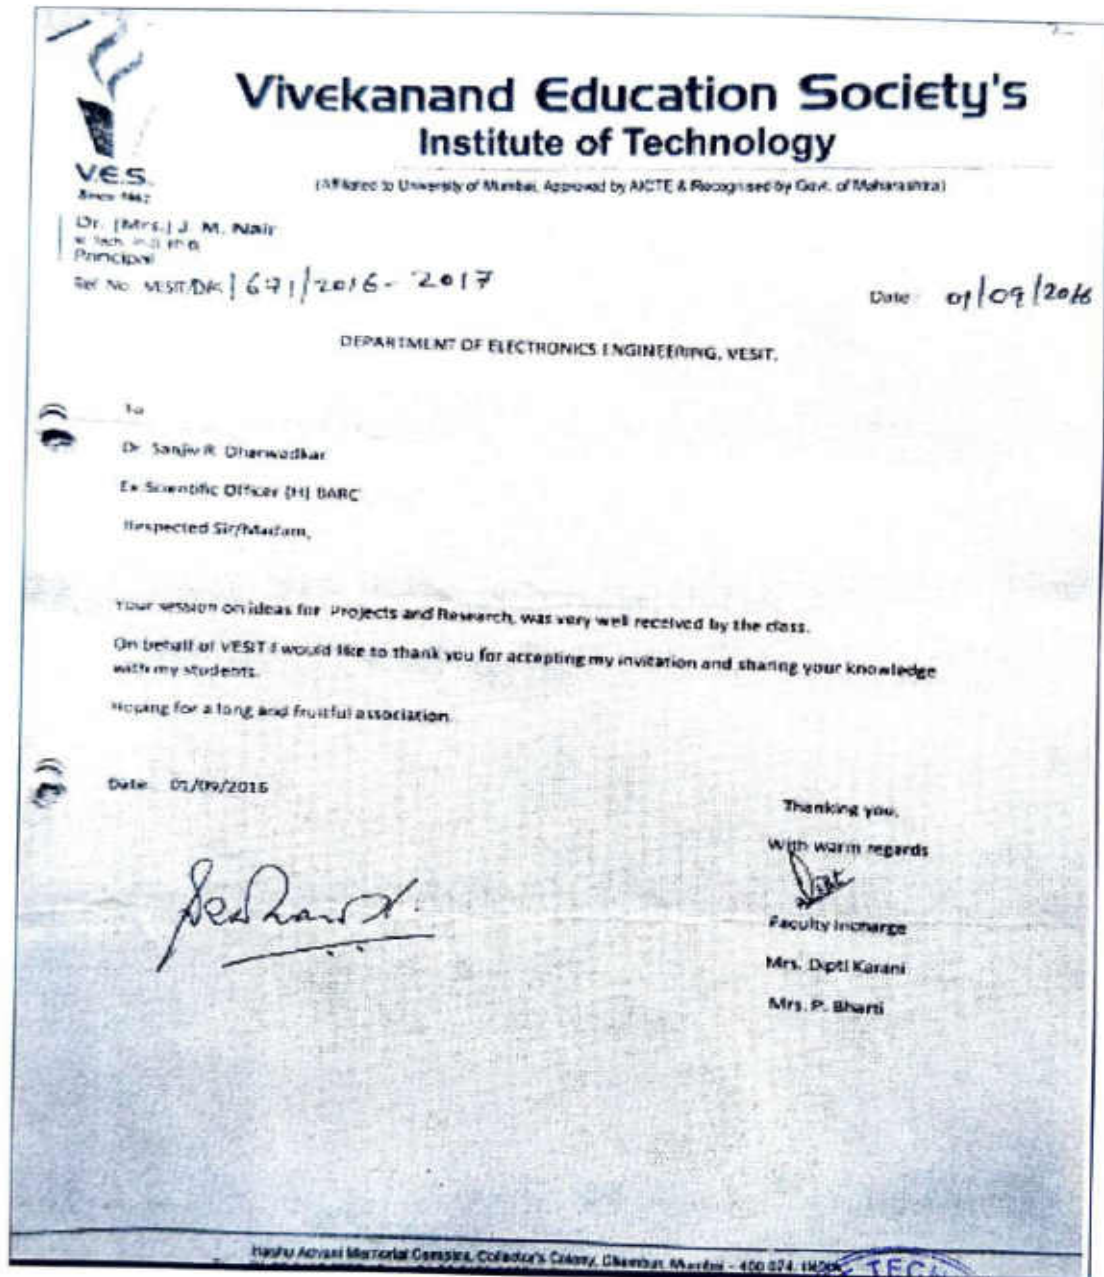 Vivekanand Education Society's
Institute of Technology
(Affiliated to University of Mumbai, Approved by AICTE & Recognised by Govt. of Maharashtra)
V.E.S.
Since 1962
Dr. (Mrs.) J. M. Nair
Principal
Ref. No. VESIT/DK/671/2016-2017
Date: 01/09/2016
DEPARTMENT OF ELECTRONICS ENGINEERING, VESIT.
To
Dr. Sanjiv R. Dharwadkar
Ex Scientific Officer (H) BARC
Respected Sir/Madam,
Your session on ideas for Projects and Research, was very well received by the class.
On behalf of VESIT I would like to thank you for accepting my invitation and sharing your knowledge
with my students.
Hoping for a long and fruitful association.
Date: 01/09/2016
Thanking you,
With warm regards
Faculty Incharge
Mrs. Dipti Karani
Mrs. P. Bharti
Hashu Advani Memorial Complex, Collector's Colony, Chembur, Mumbai - 400 074.
TECH